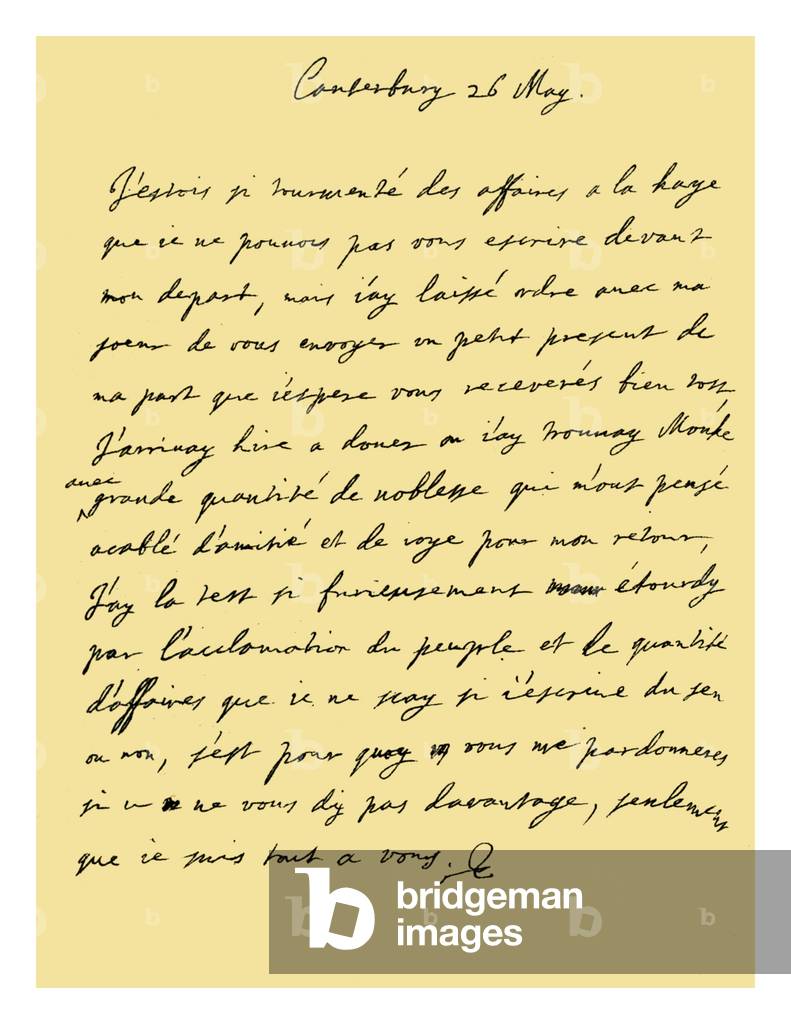 Canterbury 26 May.
J'estois si tourmenté des affaires a la haye
que ie ne pouuois pas vous escrire devant
mon depart, mais i'ay laissé ordre auec ma
soeur de vous envoyer un petit present de
ma part que i'espere vous receverés bien tost,
J'arrivay hire a douer ou i'ay trouuay Monke
auec
grande quantité de noblesse qui m'ont pensé
acablé d'amitié et de ioye pour mon retour,
J'ay la test si furieusement étourdy
par l'acclamation du peuple et le quantité
d'affaires que ie ne scay si i'escrive du sen
ou non, s'est pour quoy vous me pardonneres
si ie ne vous dis pas davantage, seulement
que ie suis tout a vous. C
bridgeman
images